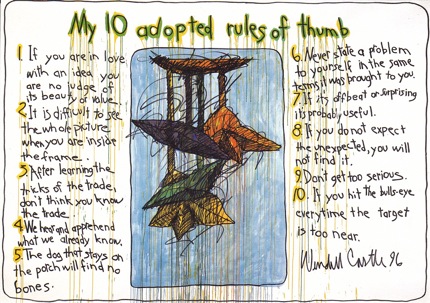 My 10 adopted rules of thumb
1. If you are in love
with an idea you
are no judge of
its beauty or value.
2. It is difficult to see
the whole picture
when you are inside
the frame.
3. After learning the
tricks of the trade,
don't think you know
the trade.
4. We hear and apprehend
what we already know.
5. The dog that stays on
the porch will find no
bones.
6. Never state a problem
to yourself in the same
terms it was brought to you.
7. If it's offbeat or surprising
it's probably useful.
8. If you do not expect
the unexpected, you will
not find it.
9. Don't get too serious.
10. If you hit the bulls-eye
everytime the target
is too near.
Wendell Castle 96